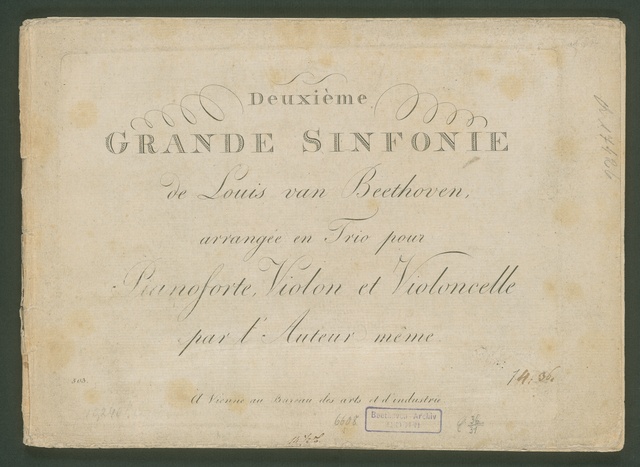 Deuxième
GRANDE SINFONIE
de Louis van Beethoven,
arrangée en Trio pour
Pianoforte, Violon et Violoncelle
par l'Auteur même
503.
A Vienne au Bureau des arts et d'industrie
6608
Beethoven-Archiv